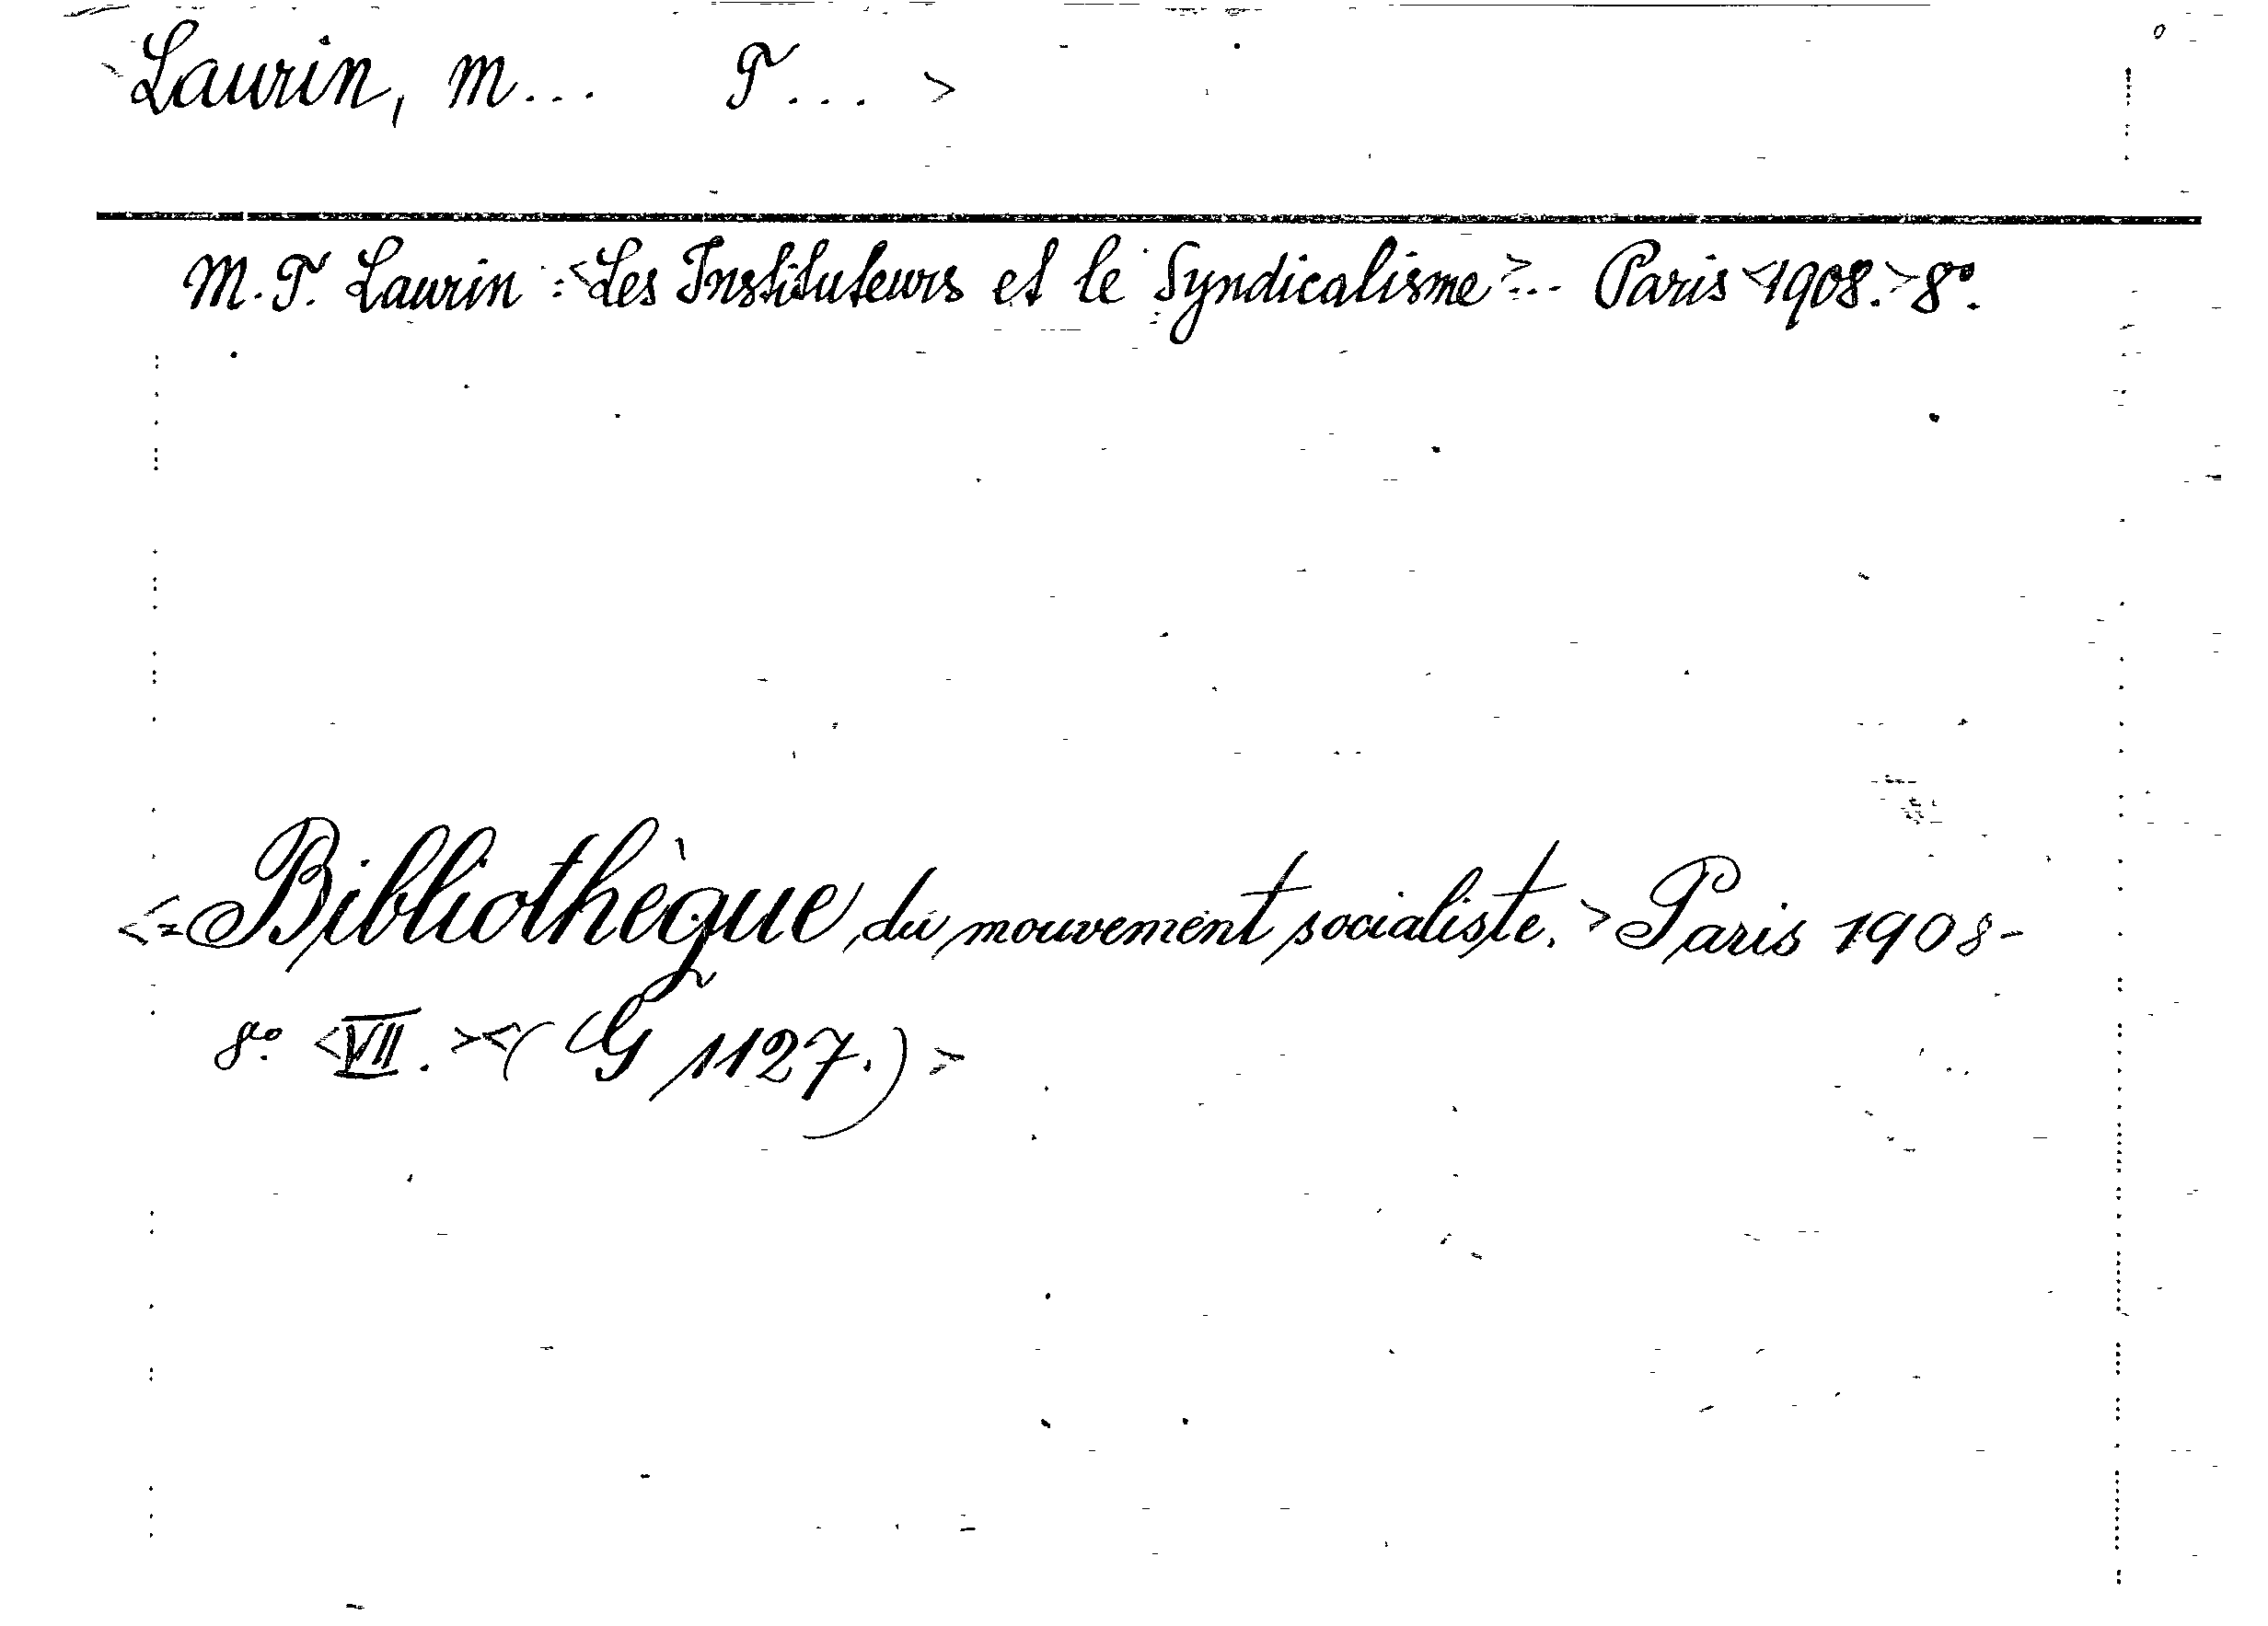 Laurin, M... T... >
M. T. Laurin : <Les Instituteurs et le Syndicalisme>... Paris <1908.> 8º.
<= Bibliothèque du mouvement socialiste. > Paris 1908-
8º. <VII. > <( G 1127.) >